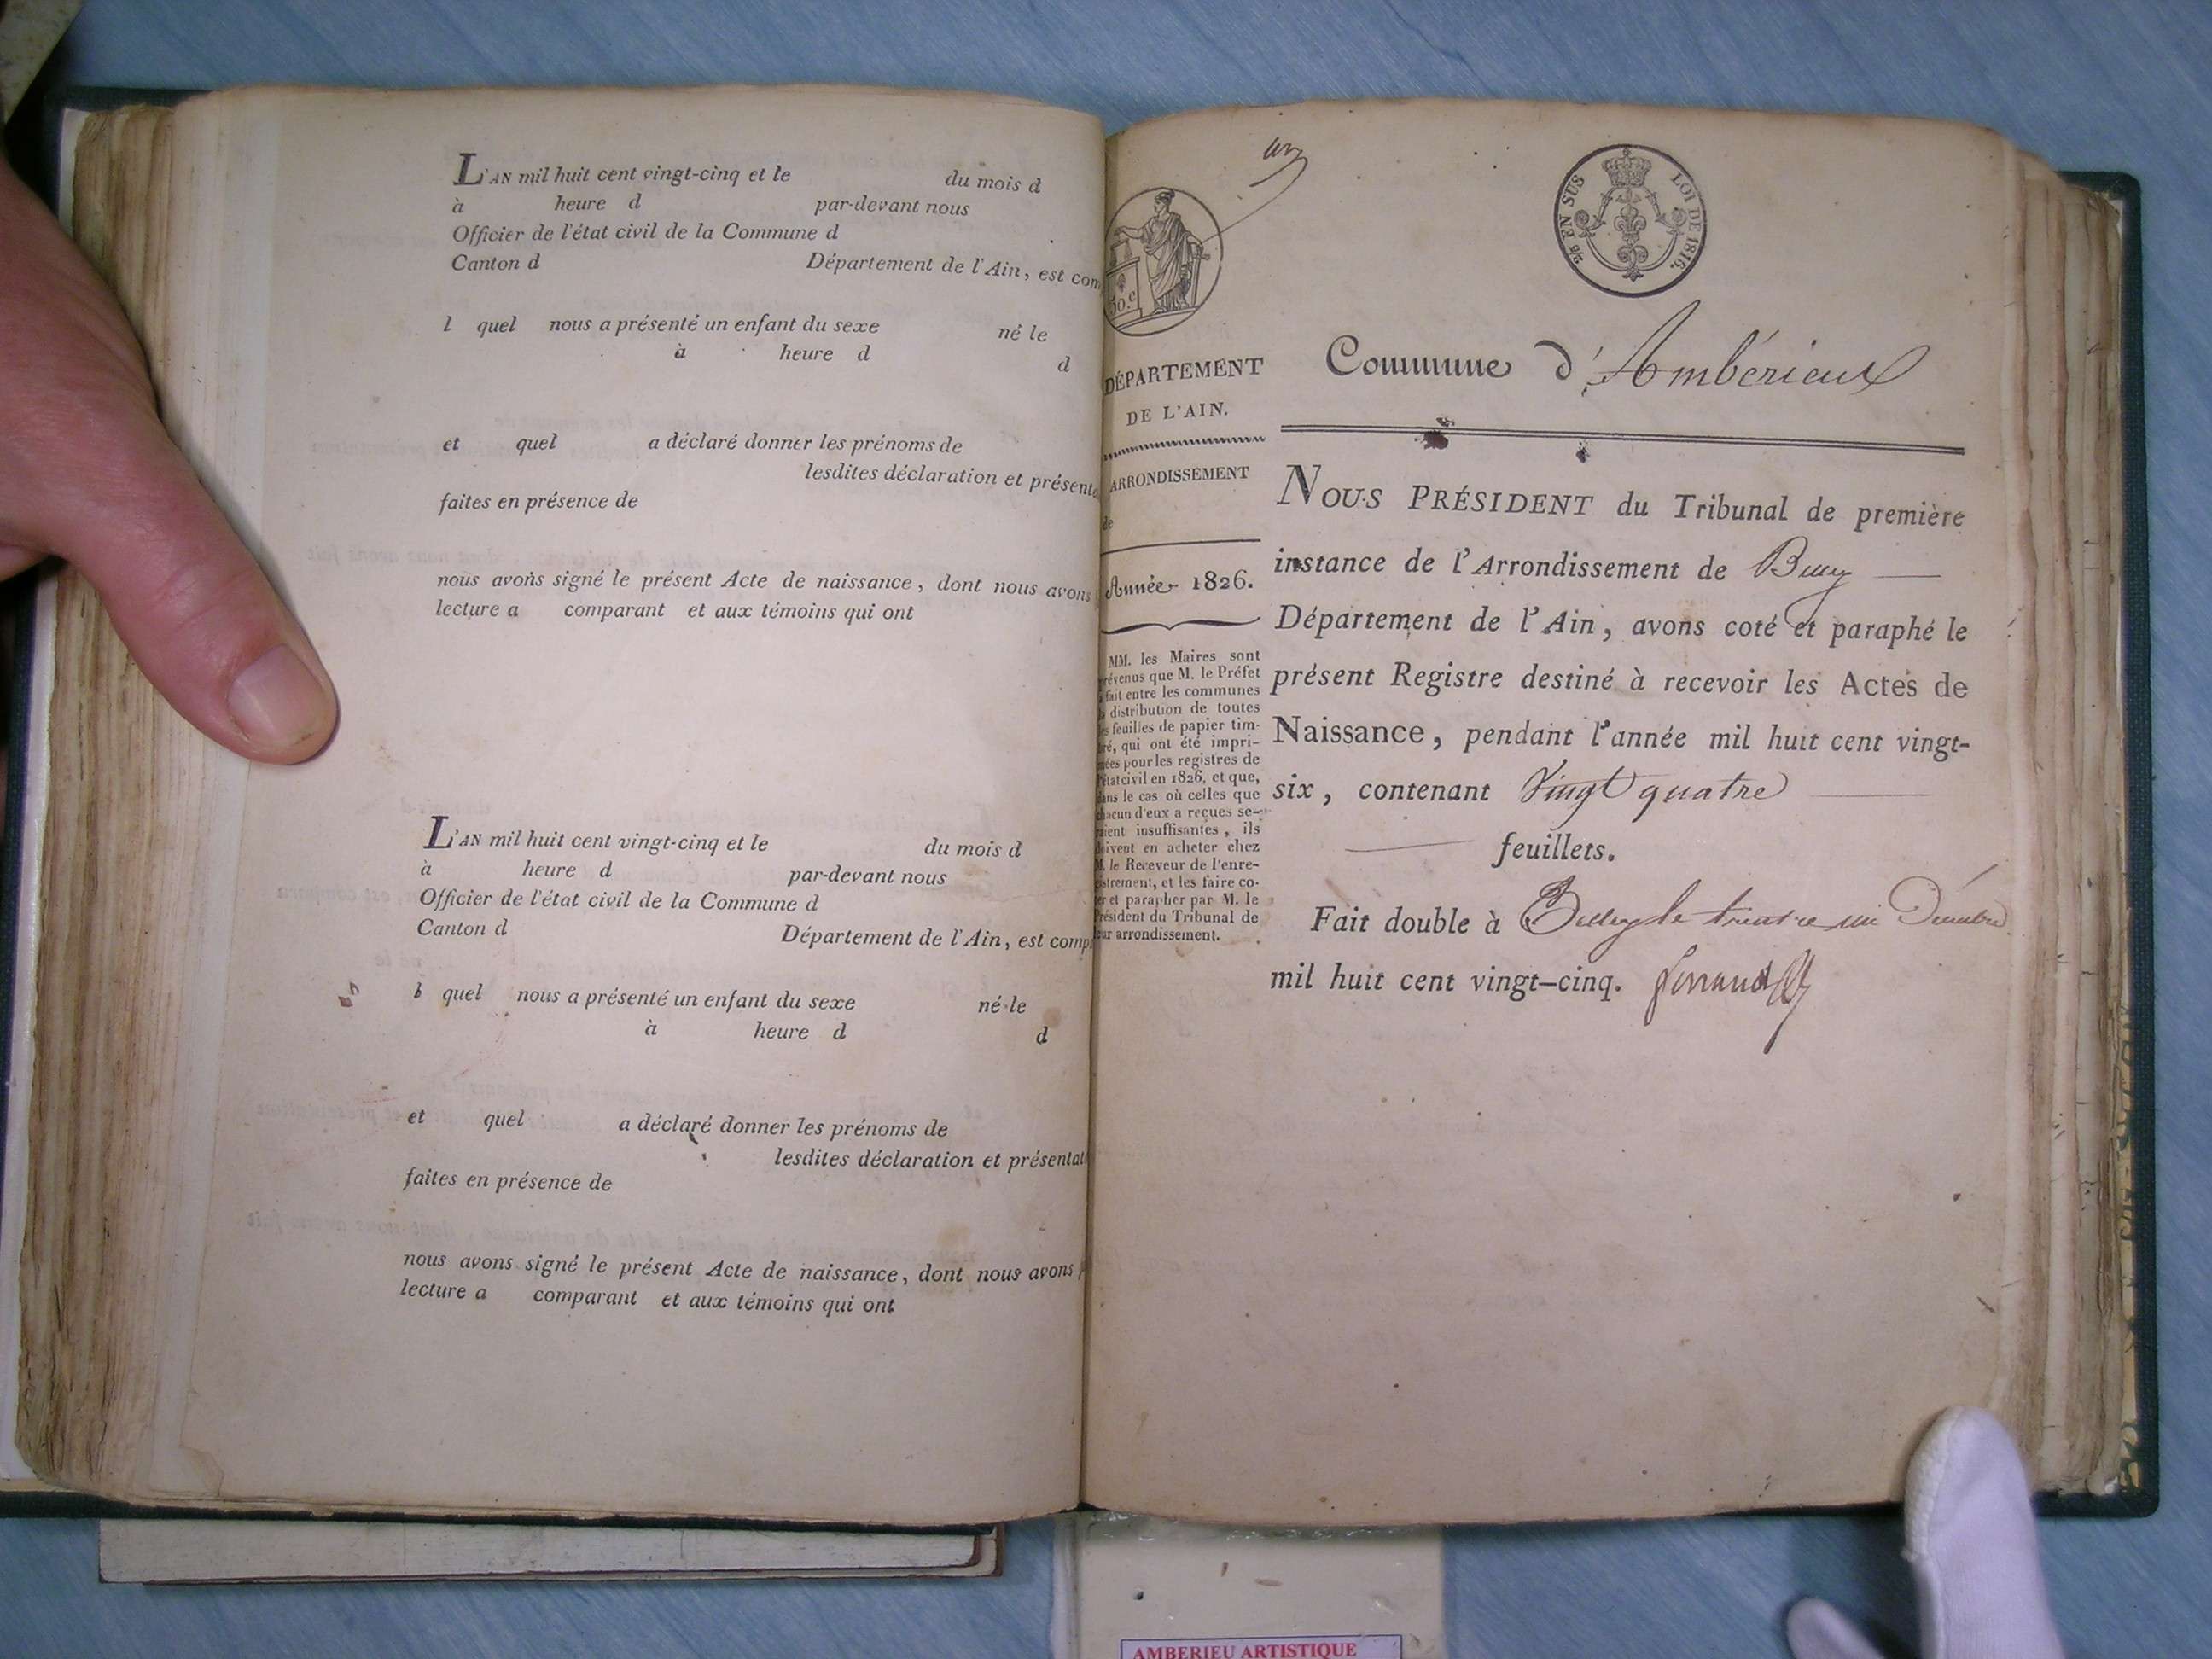 L'AN mil huit cent vingt-cinq et le du mois d
à heure d par-devant nous
Officier de l'état civil de la Commune d
Canton d Département de l'Ain, est com
l quel nous a présenté un enfant du sexe né le
à heure d d
et quel a déclaré donner les prénoms de
lesdites déclaration et présenta
faites en présence de
nous avons signé le présent Acte de naissance, dont nous avons
lecture a comparant et aux témoins qui ont
L'AN mil huit cent vingt-cinq et le du mois d
à heure d par-devant nous
Officier de l'état civil de la Commune d
Canton d Département de l'Ain, est comp
l quel nous a présenté un enfant du sexe né le
à heure d d
et quel a déclaré donner les prénoms de
lesdites déclaration et présentat
faites en présence de
nous avons signé le présent Acte de naissance, dont nous avons
lecture a comparant et aux témoins qui ont
50.c
DÉPARTEMENT
DE L'AIN.
ARRONDISSEMENT
de
Année 1826.
MM. les Maires sont
prévenus que M. le Préfet
a fait entre les communes
la distribution de toutes
les feuilles de papier tim-
bré, qui ont été impri-
mées pour les registres de
l'état civil en 1826, et que,
dans le cas où celles que
chacun d'eux a reçues se-
raient insuffisantes, ils
doivent en acheter chez
M. le Receveur de l'enre-
gistrement, et les faire co-
ter et parapher par M. le
Président du Tribunal de
leur arrondissement.
¼ EN SUS LOI DE 1816.
Commune d'Ambérieux
NOUS PRÉSIDENT du Tribunal de première
instance de l'Arrondissement de Belley
Département de l'Ain, avons coté et paraphé le
présent Registre destiné à recevoir les Actes de
Naissance, pendant l'année mil huit cent vingt-
six, contenant Vingt quatre
feuillets.
Fait double à Belley le trente un Décembre
mil huit cent vingt-cinq.
AMBERIEU ARTISTIQUE